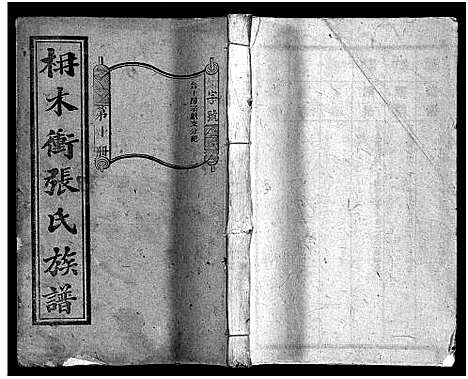 枏木衝張氏族譜
字號
第十册